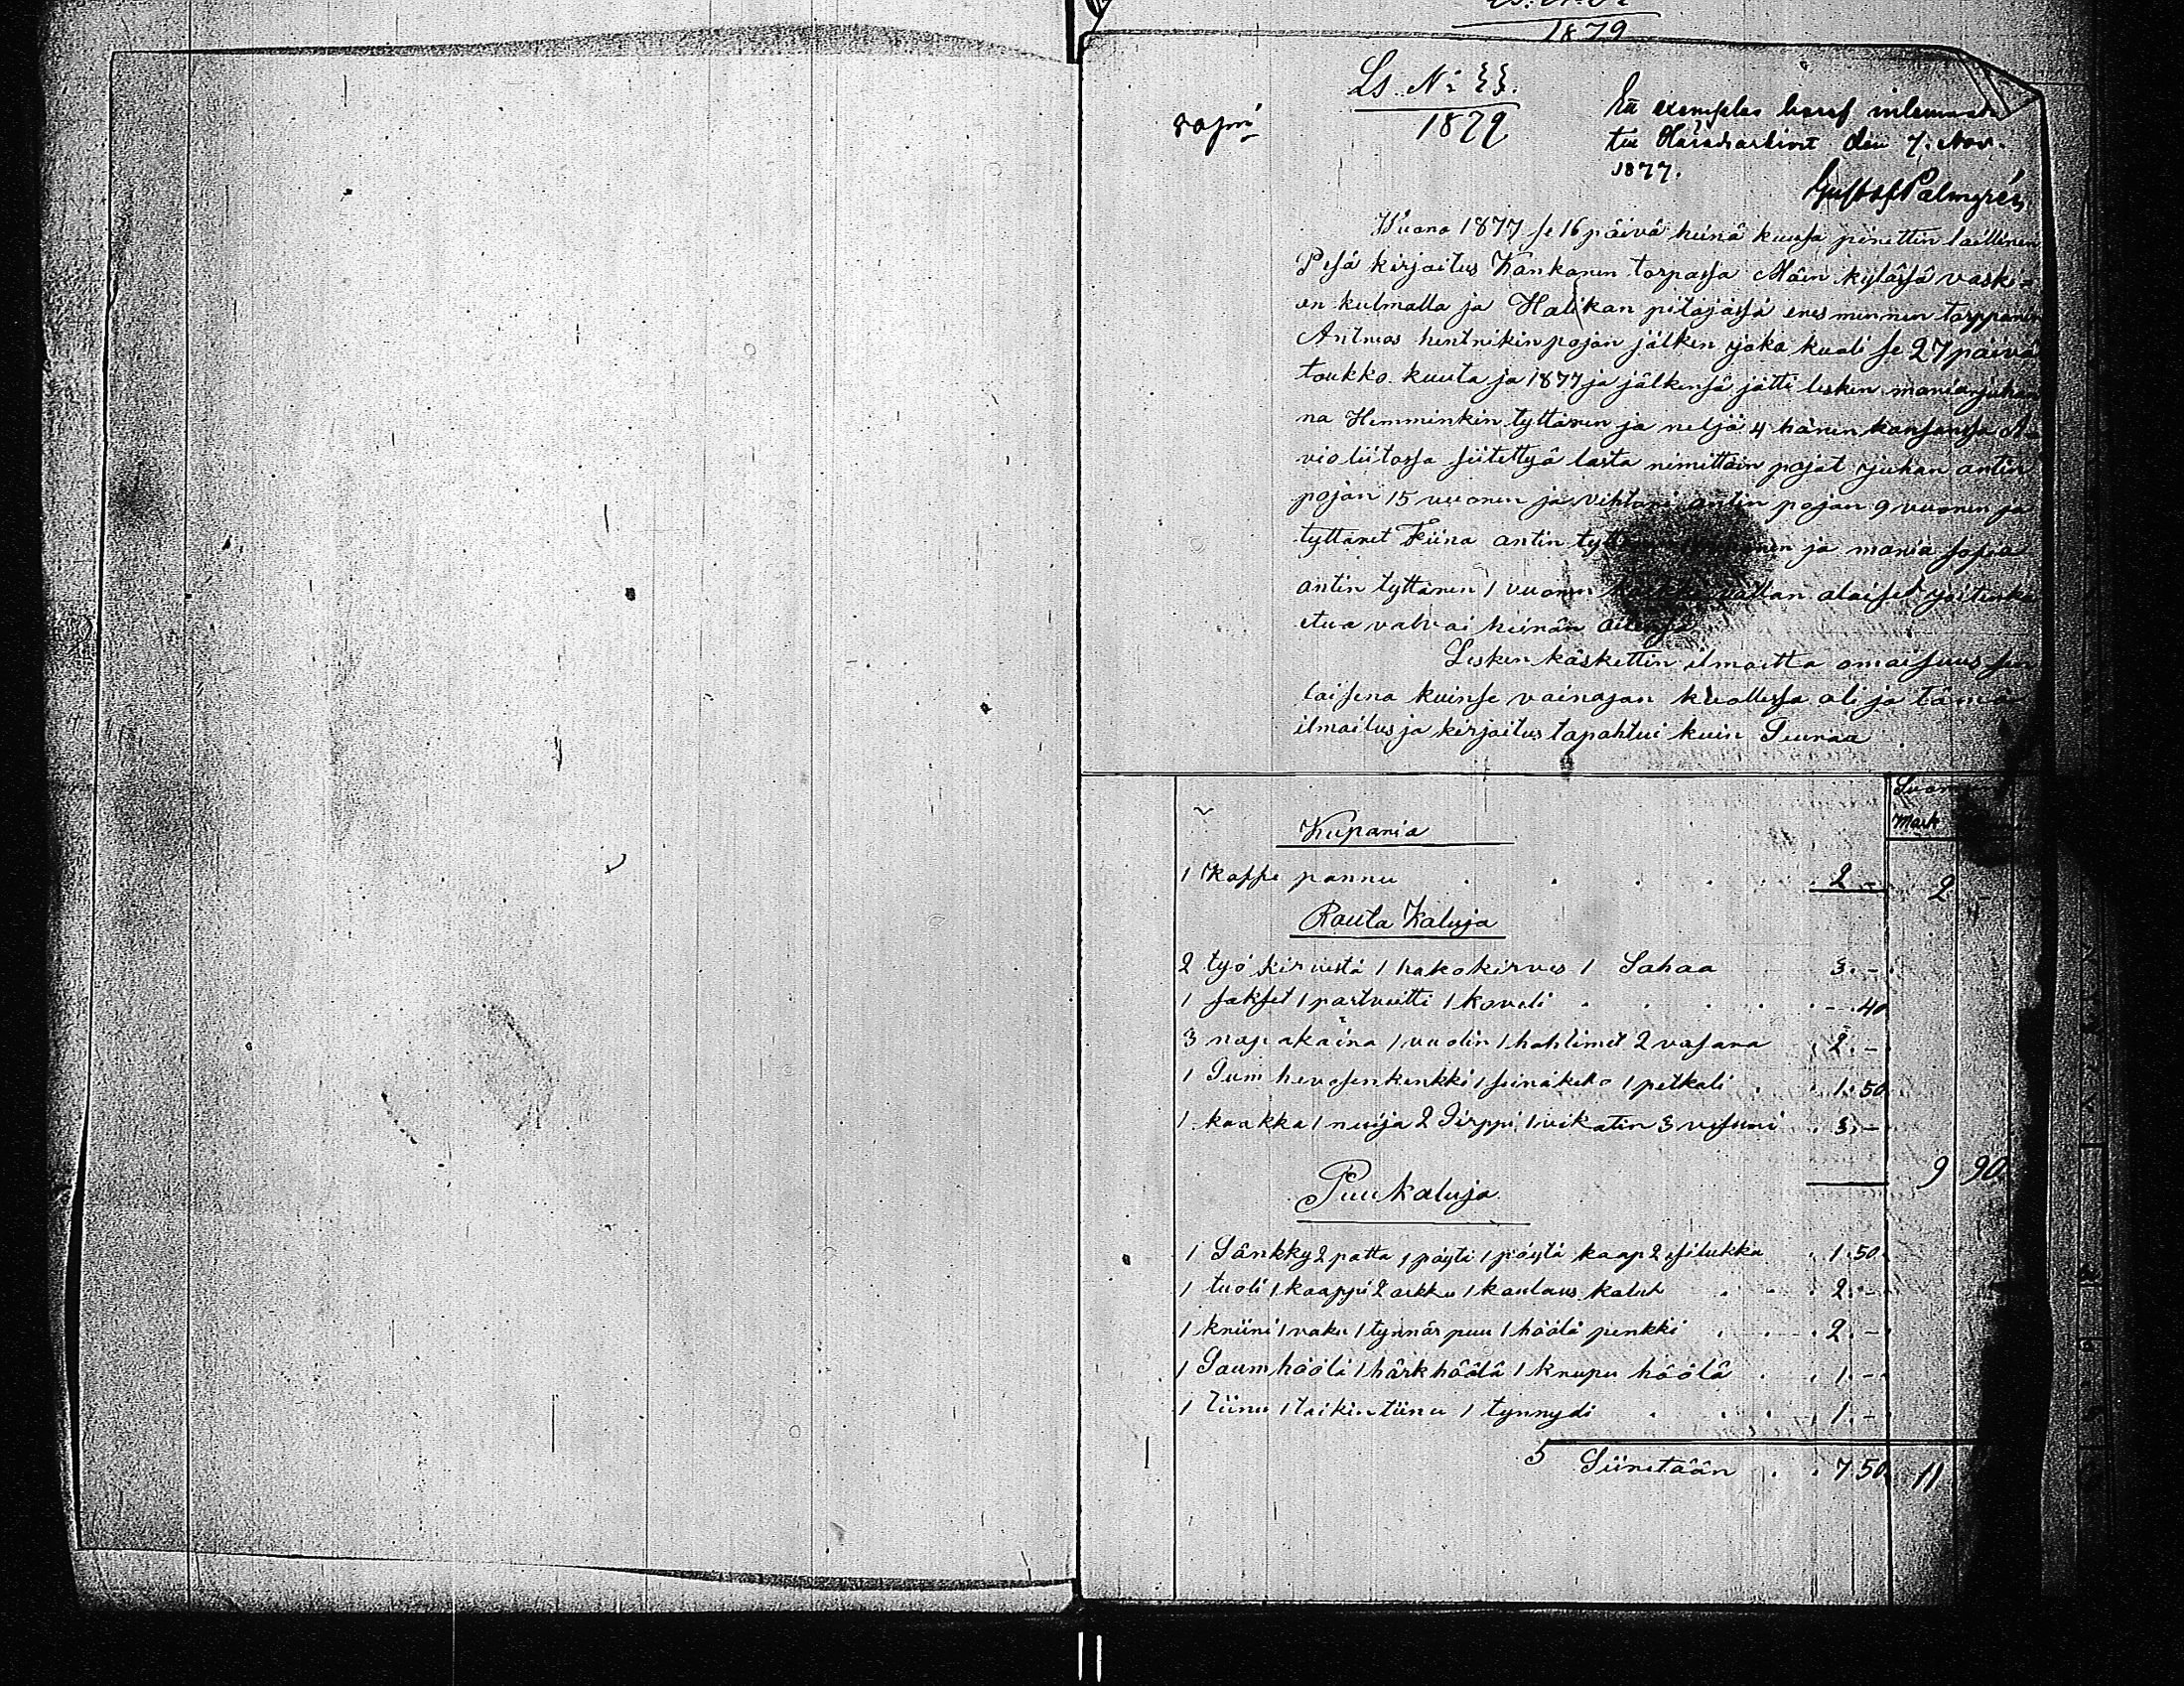 1879
Ls. No
1879
Ett exemplar häraf inlemnadt
till Häradsarkivet den 7. Nov.
1877.
Gustaf Palmgrén
Wuona 1877 se 16 päivä heinä kuusa pinettin laillinen
Pesä kirjoitus Kankanen torpassa Näin kylässä vaski=
en kulmalla ja Halikan pitäjässä enes mennen torppanin
Antneos hentrikin pojan jälken joka kuoli se 27 päivä
toukko kuuta ja 1877 ja jälkensä jätti lesken maria juhan
na Hemminkin tyttären ja neljä 4 hänen kansansa A
violiitossa siitettyä lasta nimittäin pojat juhan antin
pojan 15 vuonen ja vihtori antin pojan 9 vuonen ja
tyttäret Fiina antin ja maria sofia
antin tyttären 1 vuonen vallan alaiset joitenka
etua valvoi heinän
Lesken käskettin ilmoitta omaisuus sen
laisena kuinse vainajan kuollessa oli ja tämä
ilmoitus ja kirjoitus tapahtui kuin Seuraa
Mark
Kuparia
1 Kaffe pannu . . . . . 2 - 2 -
Rauta Kaluja
2 työ kirvestä 1 hakokirves 1 Sahaa 3. -
1 sakset 1 partveitti 1 kovoli . . . - . 40
3 nap akaina 1 vuolin 1 hahlimet 2 vasara 2. -
1 Sum hevosenkenkki 1 seinäkello 1 petkali . . 1. 50
1 kaakka 1 nuija 2 Sirppi 1 vikatin 3 3. -
9 90
Puukaluja
1 Sänkky 2 patta 1 pöytä 1 pöytä kaap 2 1. 50
1 tuoli 1 kaappi 2 arkku 1 kaulaus kalut . . 2. -
1 kniini 1 vaku 1 tynnär puu 1 höölä penkki . . . 2. -
1 Saumhöölä 1 härkhöölä 1 knupu höölä . . 1. -
1 tiinu 1 taikin tiinu 1 tynnydi . . . 1. -
Siiretään . . 7. 50 11